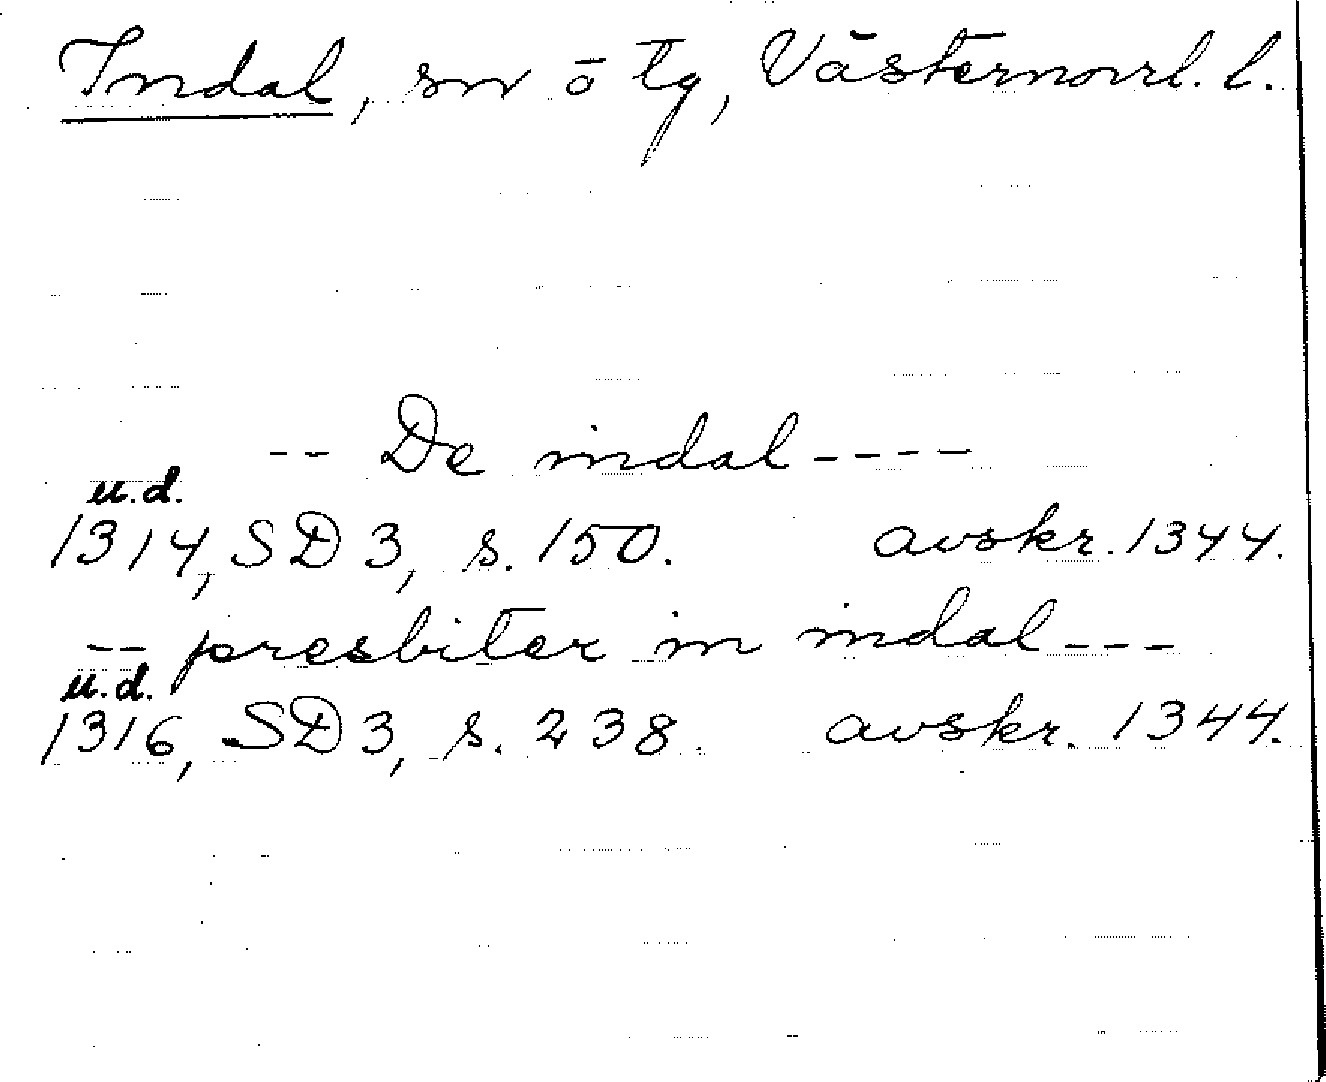 Indal, sn o tg, Västernorrl. l.
-- De indal ----
u.d.
1314, SD 3, s. 150. avskr. 1344.
-- presbiter in indal ---
u.d.
1316, SD 3, s. 238. avskr. 1344.